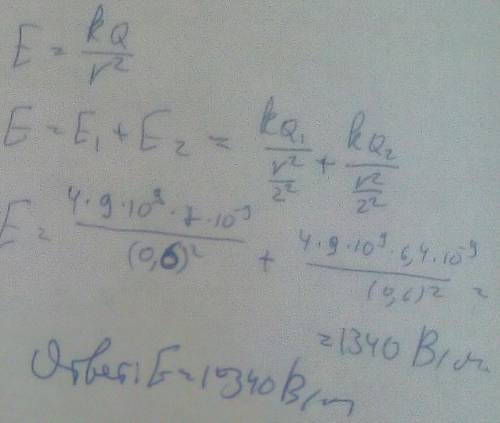 E = kQ / r²
E = E₁ + E₂ = kQ₁ / (r²/2²) + kQ₂ / (r²/2²)
E = 4·9·10⁹·7·10⁻⁹ / (0,6)² + 4·9·10⁹·6,4·10⁻⁹ / (0,6)² =
= 1340 В/м.
Ответ: E = 1340 В/м